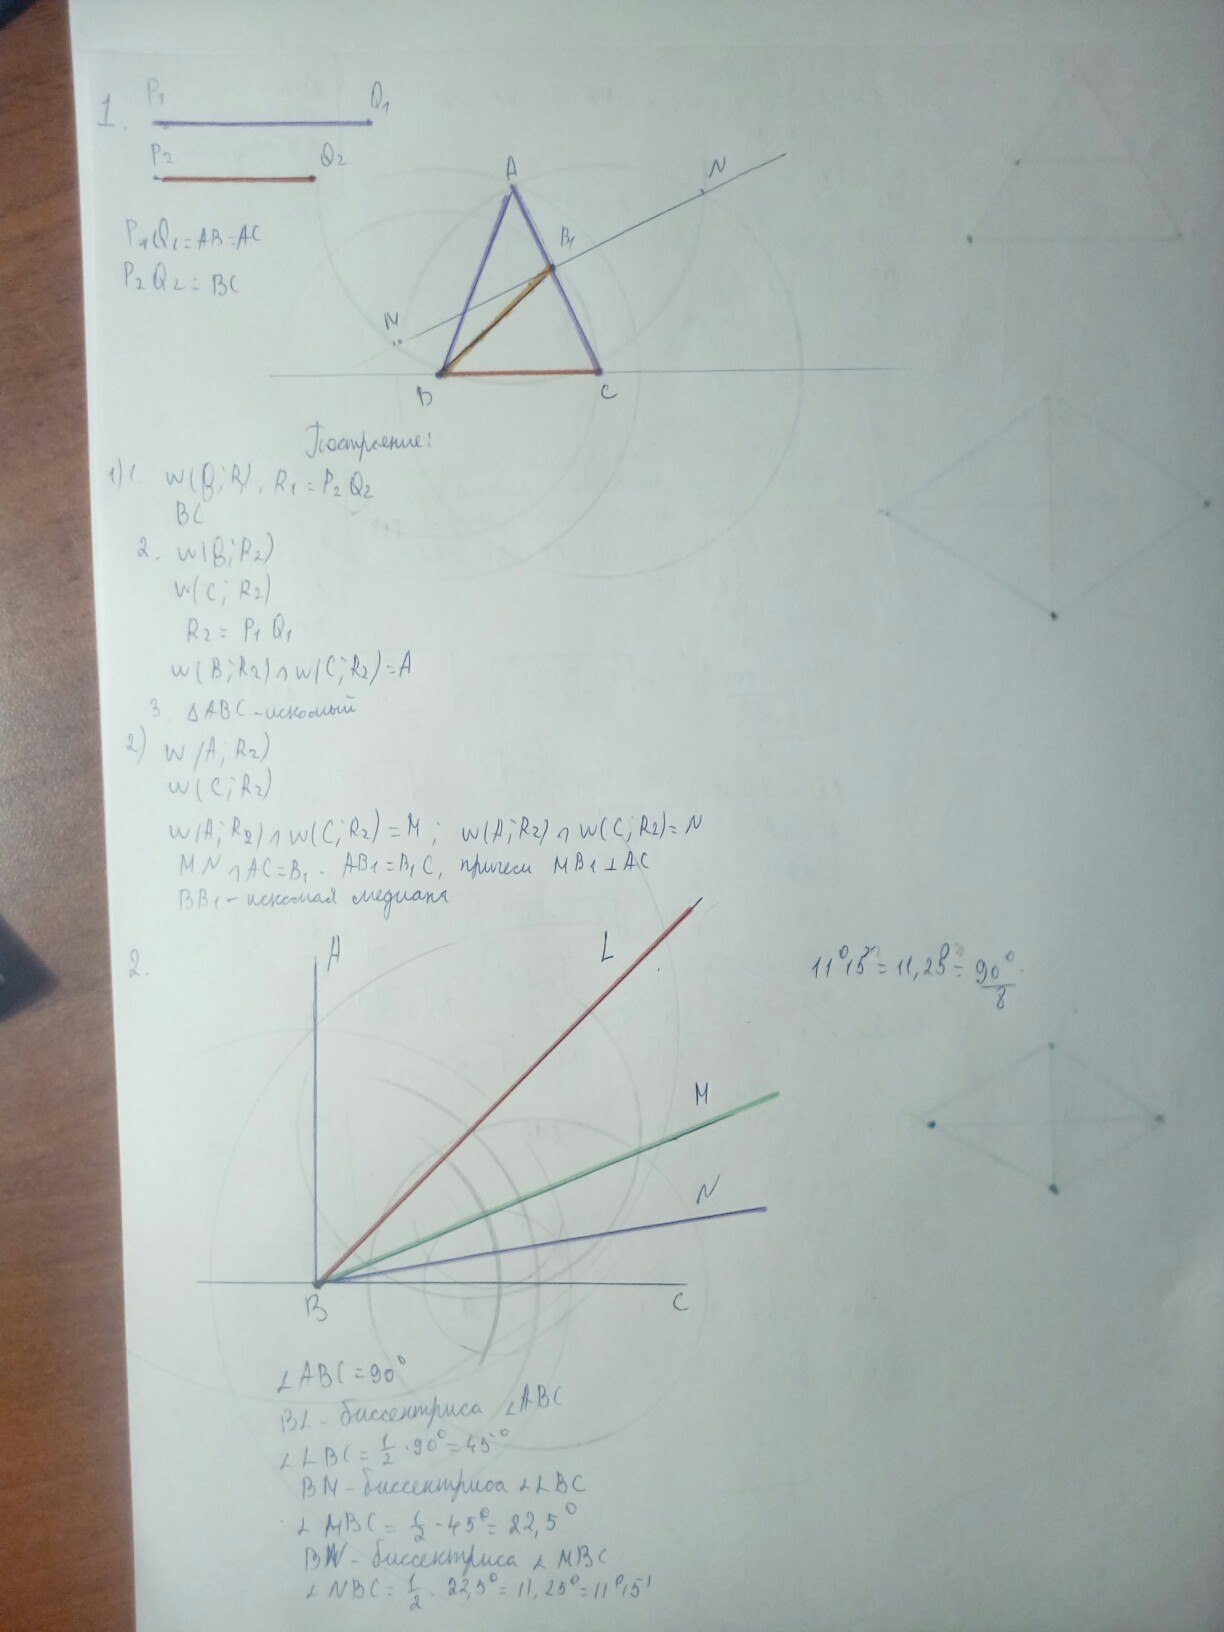 1.
P₁ Q₁
P₂ Q₂
P₁Q₁ = AB = AC
P₂Q₂ = BC
A
N
B₁
M
B
C
Построение:
1) 1. w(B; R), R₁ = P₂Q₂
BC
2. w(B; R₂)
w(C; R₂)
R₂ = P₁Q₁
w(B; R₂) ∩ w(C; R₂) = A
3. △ABC - искомый
2) w(A; R₂)
w(C; R₂)
w(A; R₂) ∩ w(C; R₂) = M; w(A; R₂) ∩ w(C; R₂) = N
MN ∩ AC = B₁. AB₁ = B₁C, причем MB₁ ⊥ AC
BB₁ - искомая медиана
2.
A
L
11°15' = 11,25° = 90°/8
M
N
B
C
∠ABC = 90°
BL - биссектриса ∠ABC
∠LBC = 1/2 · 90° = 45°
BM - биссектриса ∠LBC
∠MBC = 1/2 · 45° = 22,5°
BN - биссектриса ∠MBC
∠NBC = 1/2 · 22,5° = 11,25° = 11°15'